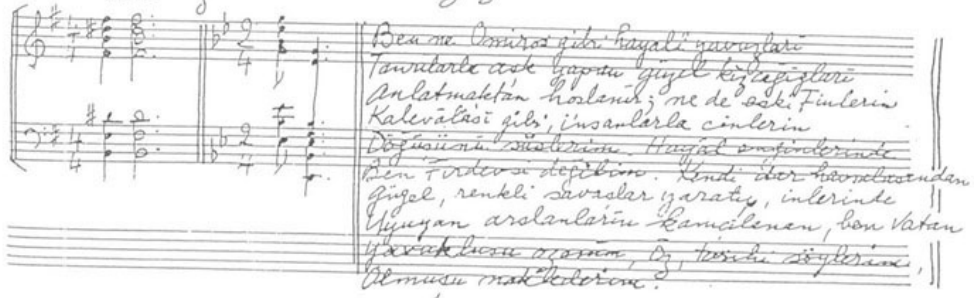 Ben ne Omiros gibi hayali yavuzları
Tanrılarla aşk yapan güzel kızcağızları
Anlatmaktan hoşlanır; ne de eski Finlerin
Kalevalası gibi, insanlarla cinlerin
Döğüşünü süslerim. Hayal enginlerinde
Ben Firdevsi değilim. Kendi havsalasından
güzel, renkli savaşlar yaratıp, inlerinde
Uyuyan arslanların, ben vatan
ozanım, Öz, tarihi söylerim,
Olmuşu naklederim.